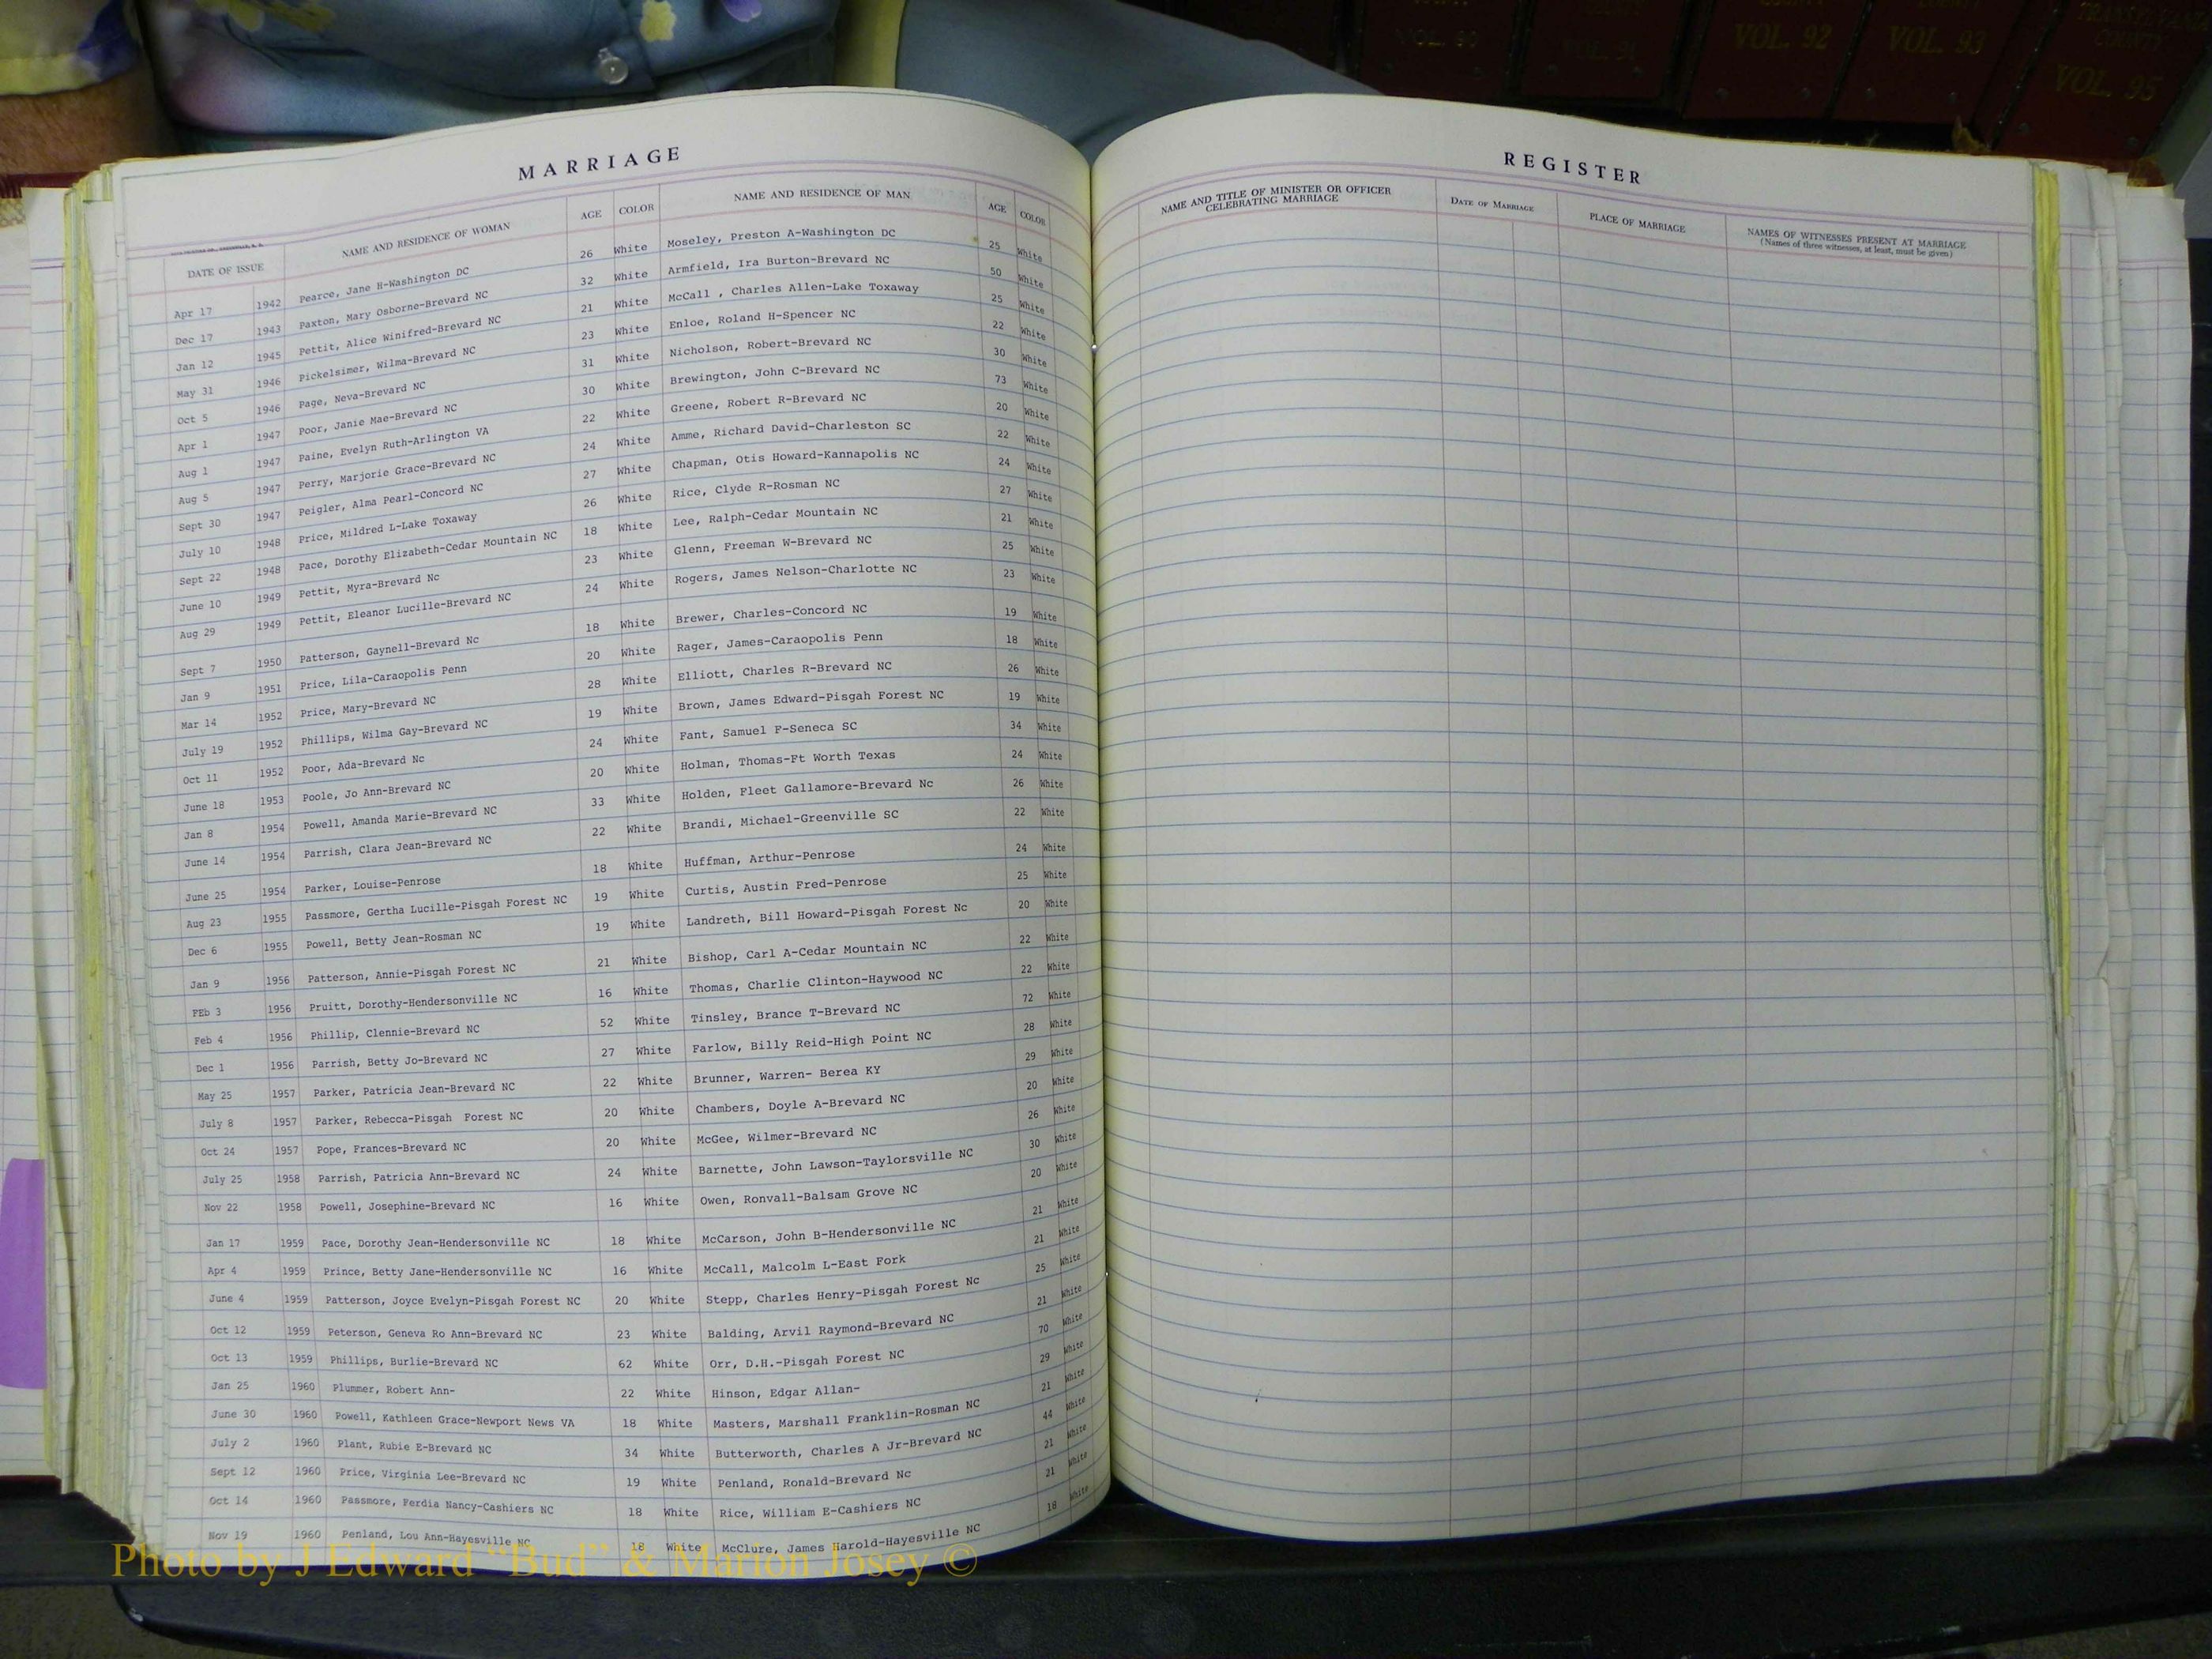 COUNTY
VOL. 90
COUNTY
VOL. 91
COUNTY
VOL. 92
COUNTY
VOL. 93
TRANSYLVANIA
COUNTY
VOL. 95
MARRIAGE
DATE OF ISSUE NAME AND RESIDENCE OF WOMAN AGE COLOR NAME AND RESIDENCE OF MAN AGE COLOR
Apr 17 1942 Pearce, Jane H-Washington DC 26 White Moseley, Preston A-Washington DC 25 White
Dec 17 1943 Paxton, Mary Osborne-Brevard NC 32 White Armfield, Ira Burton-Brevard NC 50 White
Jan 12 1945 Pettit, Alice Winifred-Brevard NC 21 White McCall , Charles Allen-Lake Toxaway 25 White
May 31 1946 Pickelsimer, Wilma-Brevard NC 23 White Enloe, Roland H-Spencer NC 22 White
Oct 5 1946 Page, Neva-Brevard NC 31 White Nicholson, Robert-Brevard NC 30 White
Apr 1 1947 Poor, Janie Mae-Brevard NC 30 White Brewington, John C-Brevard NC 73 White
Aug 1 1947 Paine, Evelyn Ruth-Arlington VA 22 White Greene, Robert R-Brevard NC 20 White
Aug 5 1947 Perry, Marjorie Grace-Brevard NC 24 White Amme, Richard David-Charleston SC 22 White
Sept 30 1947 Peigler, Alma Pearl-Concord NC 27 White Chapman, Otis Howard-Kannapolis NC 24 White
July 10 1948 Price, Mildred L-Lake Toxaway 26 White Rice, Clyde R-Rosman NC 27 White
Sept 22 1948 Pace, Dorothy Elizabeth-Cedar Mountain NC 18 White Lee, Ralph-Cedar Mountain NC 21 White
June 10 1949 Pettit, Myra-Brevard Nc 23 White Glenn, Freeman W-Brevard NC 25 White
Aug 29 1949 Pettit, Eleanor Lucille-Brevard NC 24 White Rogers, James Nelson-Charlotte NC 23 White
Sept 7 1950 Patterson, Gaynell-Brevard Nc 18 White Brewer, Charles-Concord NC 19 White
Jan 9 1951 Price, Lila-Caraopolis Penn 20 White Rager, James-Caraopolis Penn 18 White
Mar 14 1952 Price, Mary-Brevard NC 28 White Elliott, Charles R-Brevard NC 26 White
July 19 1952 Phillips, Wilma Gay-Brevard NC 19 White Brown, James Edward-Pisgah Forest NC 19 White
Oct 11 1952 Poor, Ada-Brevard Nc 24 White Fant, Samuel F-Seneca SC 34 White
June 18 1953 Poole, Jo Ann-Brevard NC 20 White Holman, Thomas-Ft Worth Texas 24 White
Jan 8 1954 Powell, Amanda Marie-Brevard NC 33 White Holden, Fleet Gallamore-Brevard Nc 26 White
June 14 1954 Parrish, Clara Jean-Brevard NC 22 White Brandi, Michael-Greenville SC 22 White
June 25 1954 Parker, Louise-Penrose 18 White Huffman, Arthur-Penrose 24 White
Aug 23 1955 Passmore, Gertha Lucille-Pisgah Forest NC 19 White Curtis, Austin Fred-Penrose 25 White
Dec 6 1955 Powell, Betty Jean-Rosman NC 19 White Landreth, Bill Howard-Pisgah Forest Nc 20 White
Jan 9 1956 Patterson, Annie-Pisgah Forest NC 21 White Bishop, Carl A-Cedar Mountain NC 22 White
FEb 3 1956 Pruitt, Dorothy-Hendersonville NC 16 White Thomas, Charlie Clinton-Haywood NC 22 White
Feb 4 1956 Phillip, Clennie-Brevard NC 52 White Tinsley, Brance T-Brevard NC 72 White
Dec 1 1956 Parrish, Betty Jo-Brevard NC 27 White Farlow, Billy Reid-High Point NC 28 White
May 25 1957 Parker, Patricia Jean-Brevard NC 22 White Brunner, Warren- Berea KY 29 White
July 8 1957 Parker, Rebecca-Pisgah Forest NC 20 White Chambers, Doyle A-Brevard NC 20 White
Oct 24 1957 Pope, Frances-Brevard NC 20 White McGee, Wilmer-Brevard NC 26 White
July 25 1958 Parrish, Patricia Ann-Brevard NC 24 White Barnette, John Lawson-Taylorsville NC 30 White
Nov 22 1958 Powell, Josephine-Brevard NC 16 White Owen, Ronvall-Balsam Grove NC 20 White
Jan 17 1959 Pace, Dorothy Jean-Hendersonville NC 18 White McCarson, John B-Hendersonville NC 21 White
Apr 4 1959 Prince, Betty Jane-Hendersonville NC 16 White McCall, Malcolm L-East Fork 21 White
June 4 1959 Patterson, Joyce Evelyn-Pisgah Forest NC 20 White Stepp, Charles Henry-Pisgah Forest Nc 25 White
Oct 12 1959 Peterson, Geneva Ro Ann-Brevard NC 23 White Balding, Arvil Raymond-Brevard NC 21 White
Oct 13 1959 Phillips, Burlie-Brevard NC 62 White Orr, D.H.-Pisgah Forest NC 70 White
Jan 25 1960 Plummer, Robert Ann- 22 White Hinson, Edgar Allan- 29 White
June 30 1960 Powell, Kathleen Grace-Newport News VA 18 White Masters, Marshall Franklin-Rosman NC 21 White
July 2 1960 Plant, Rubie E-Brevard NC 34 White Butterworth, Charles A Jr-Brevard NC 44 White
Sept 12 1960 Price, Virginia Lee-Brevard NC 19 White Penland, Ronald-Brevard Nc 21 White
Oct 14 1960 Passmore, Ferdia Nancy-Cashiers NC 18 White Rice, William E-Cashiers NC 21 White
Nov 19 1960 Penland, Lou Ann-Hayesville NC 18 White McClure, James Harold-Hayesville NC 18 White
REGISTER
NAME AND TITLE OF MINISTER OR OFFICER CELEBRATING MARRIAGE DATE OF MARRIAGE PLACE OF MARRIAGE NAMES OF WITNESSES PRESENT AT MARRIAGE
(Names of three witnesses, at least, must be given)
Photo by J Edward "Bud" & Marion Josey ©